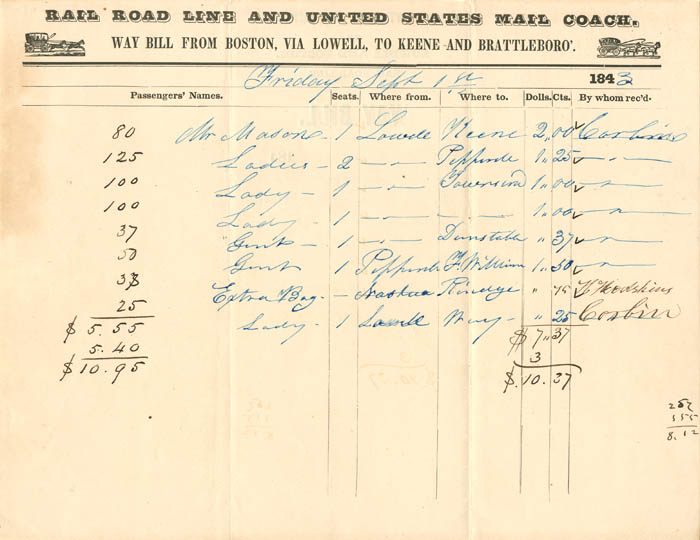 RAIL ROAD LINE AND UNITED STATES MAIL COACH.
WAY BILL FROM BOSTON, VIA LOWELL, TO KEENE AND BRATTLEBORO'.
Friday Sept 1st 1843
Passengers' Names. Seats. Where from. Where to. Dolls. Cts. By whom rec'd.
80 Mr Mason 1 Lowell Keene 2,00 Corbin
125 Ladies 2 — " — Pepperell 1 " 25 — " —
100 Lady 1 — " — Townsend 1 " 00 — " —
100 Lady 1 — " — — " — 1 " 00 — " —
37 Gent 1 — " — Dunstable " 37 — " —
50 Gent 1 Pepperell F. William 1 " 50 — " —
38 Extra Bag — Nashua Rindge "
25 Lady 1 Lowell Way " 25 Corbin
$ 5.55 $ 7 " 37
5.40 3
$ 10.95 $ 10.37
257
155
8.12